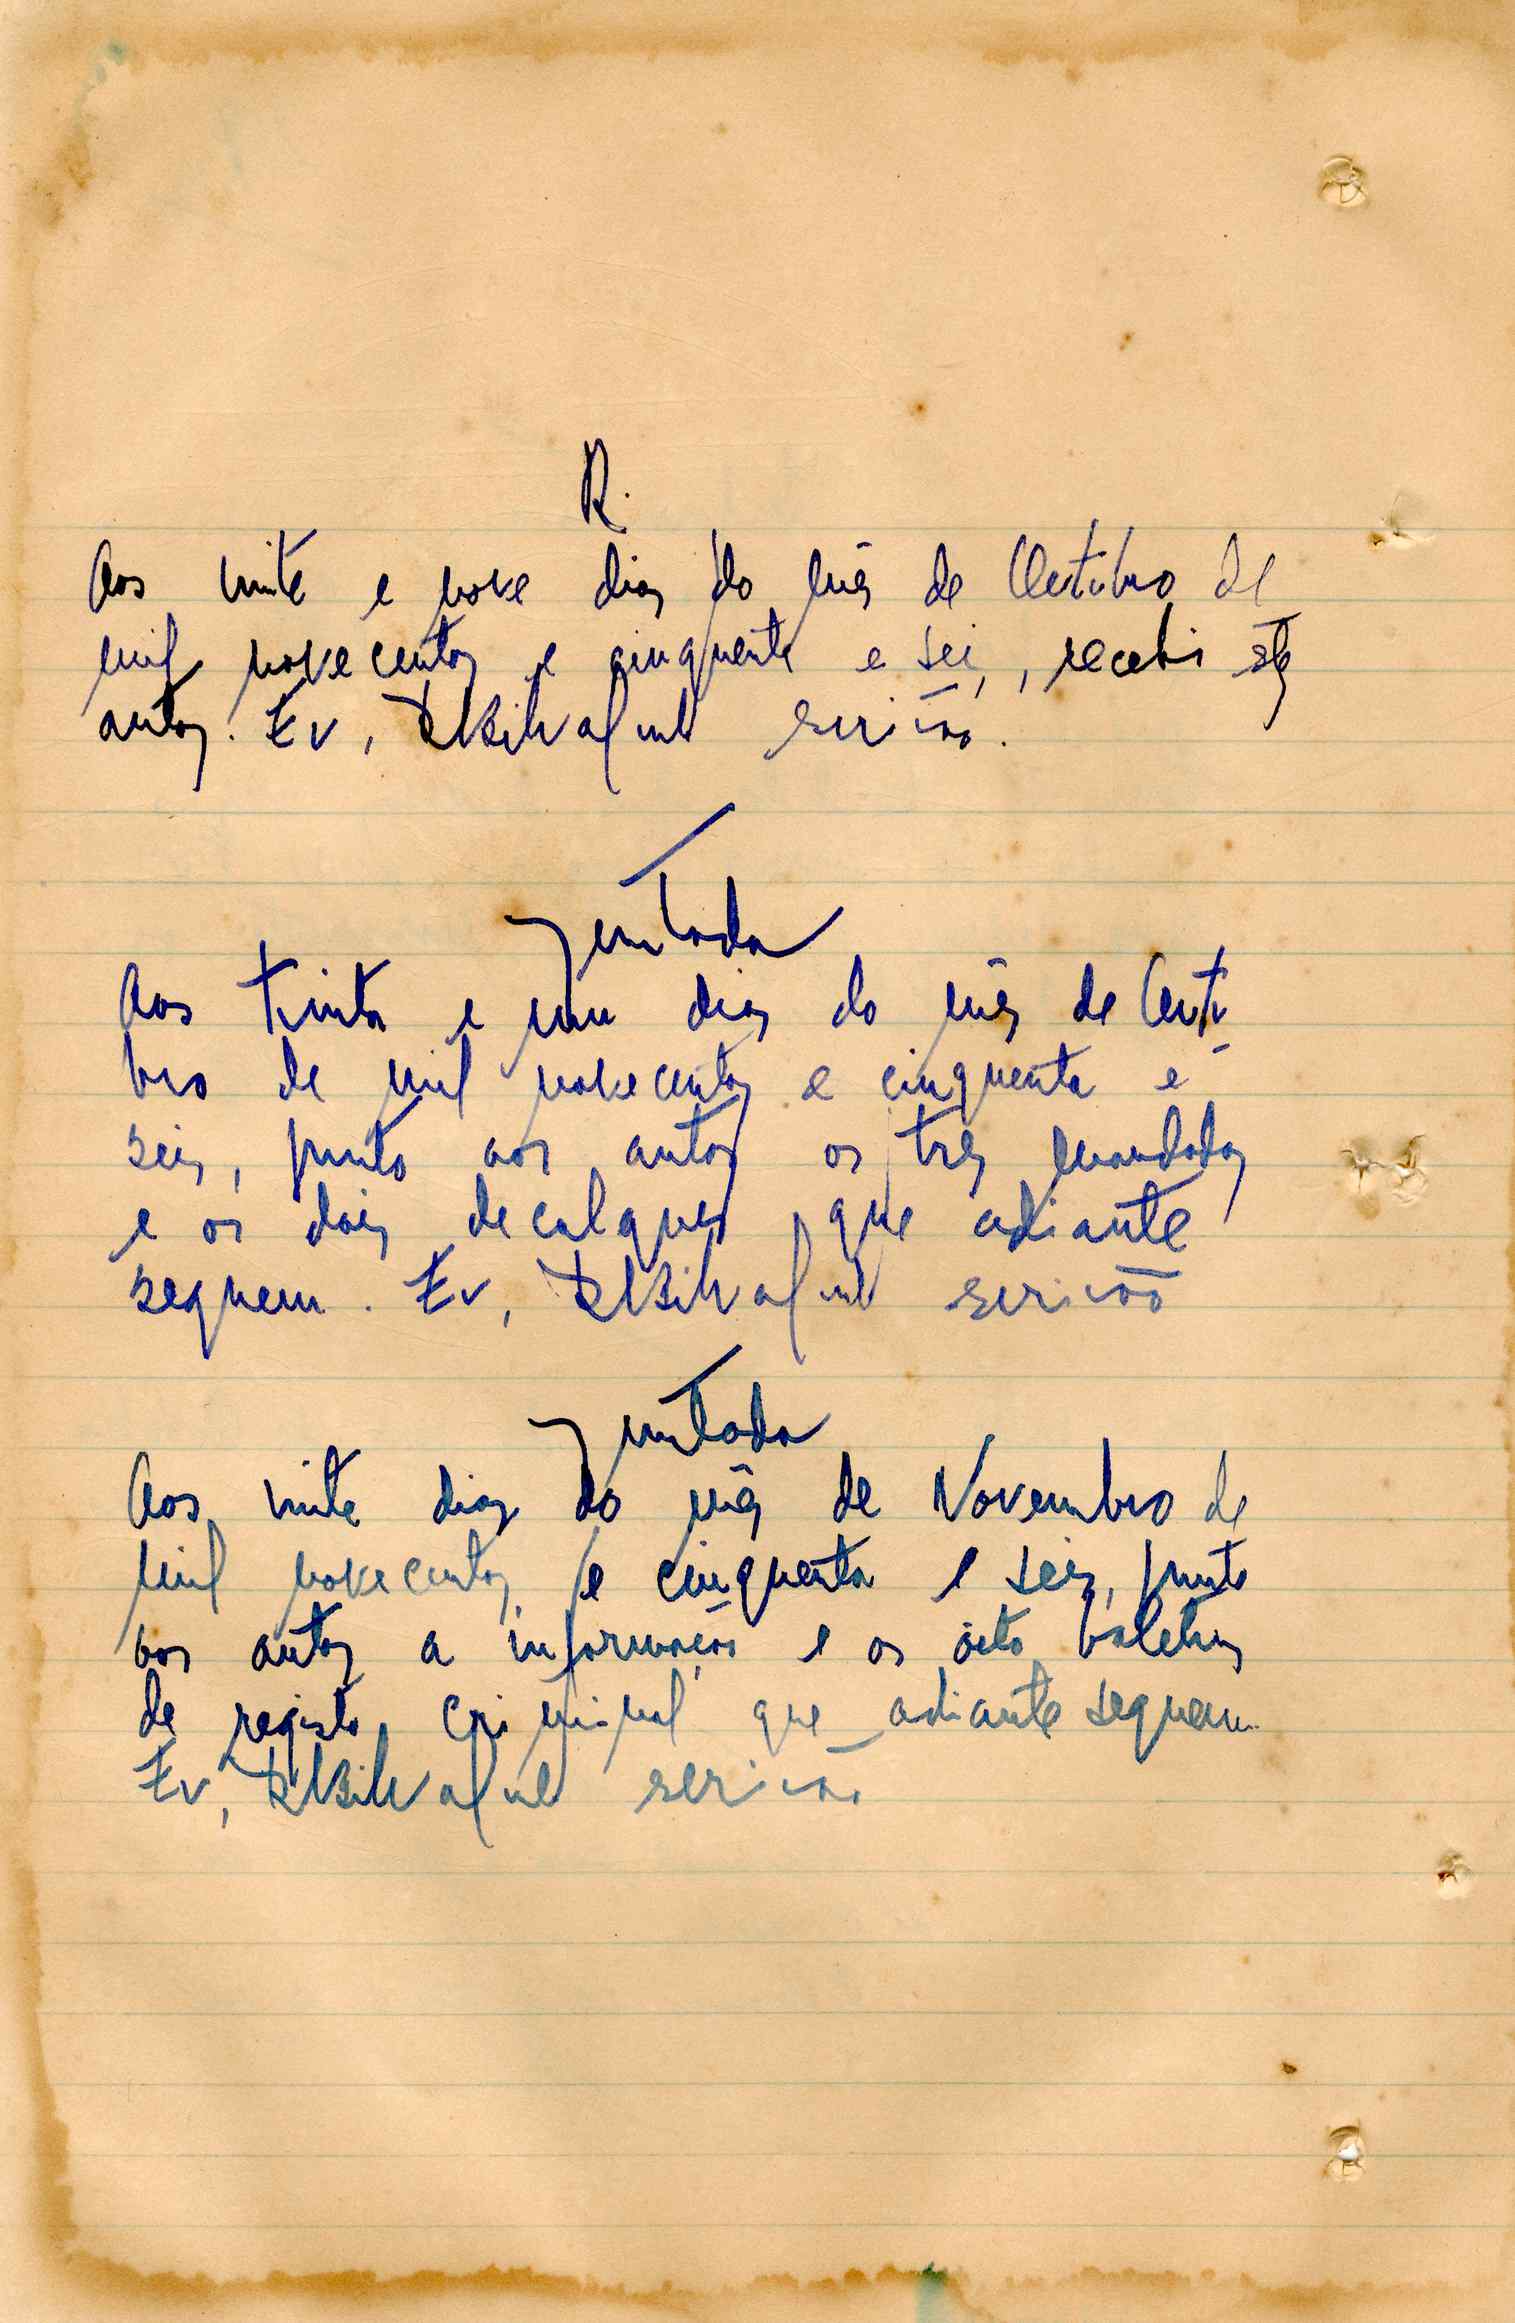 R.
Aos vinte e nove dias do mês de Outubro de
mil novecentos e cinquenta e seis, recebi êstes
autos. Eu, escrivão.
Juntada
Aos trinta e um dias do mês de Outu-
bro de mil novecentos e cinquenta e
seis, junto aos autos os três mandados
e os dois decalques que adiante
seguem. Eu, escrivão
Juntada
Aos vinte dias do mês de Novembro de
mil novecentos e cinquenta e seis, junto
aos autos a informação e os oito boletins
de registo criminal que adiante seguem.
Eu, escrivão